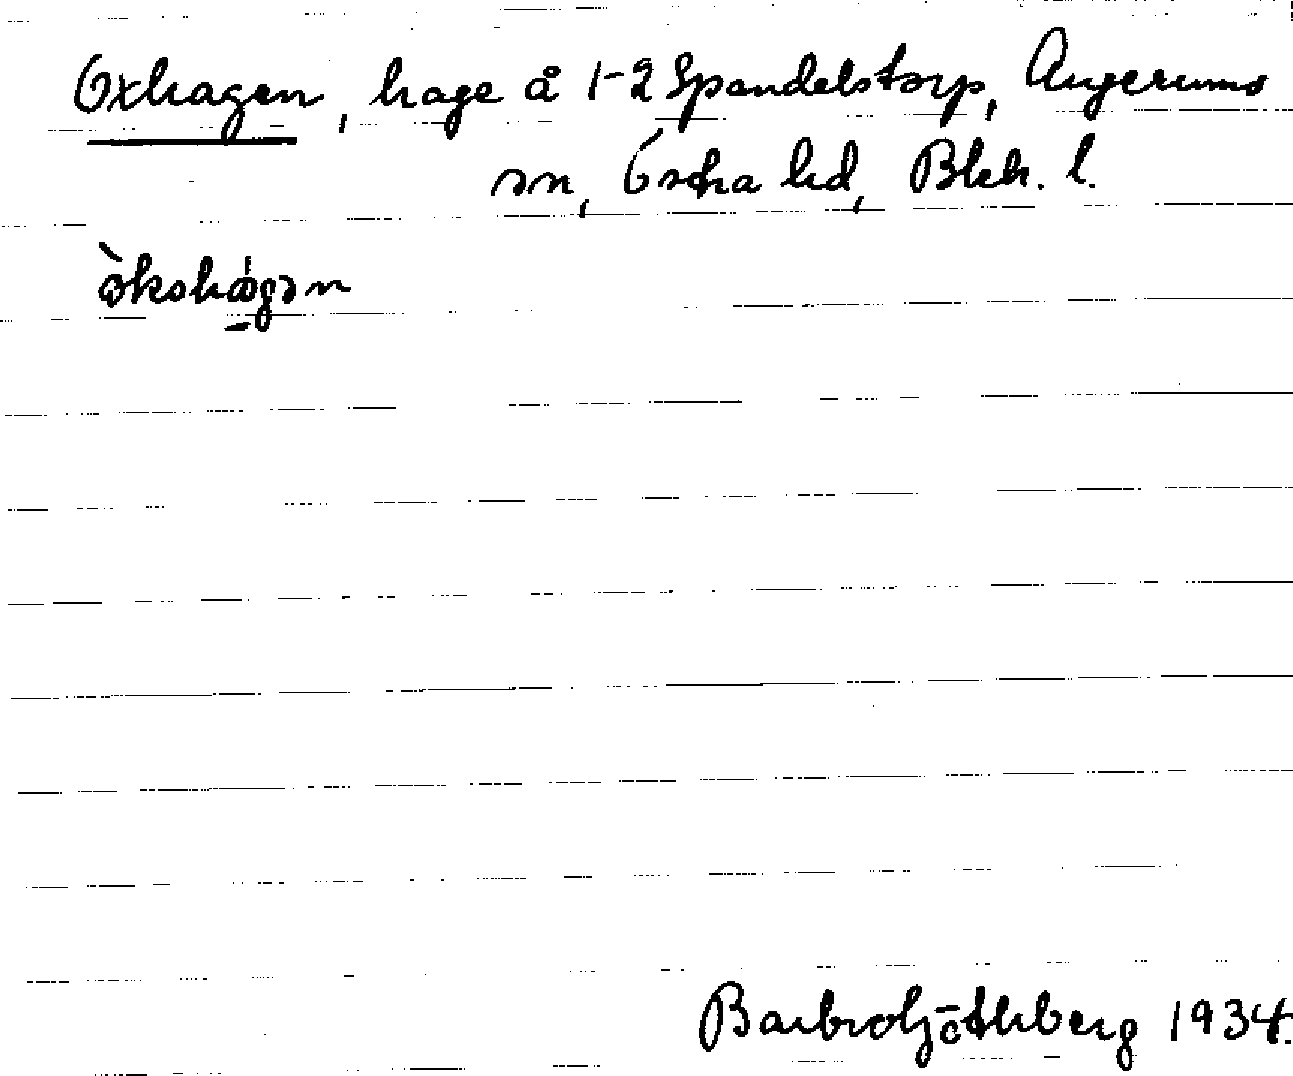 Oxhagen, hage å 1-2 Spandelstorp, Augerums
sn, Östra hd, Blek. l.
òkshágən
Barbro Göthberg 1934.